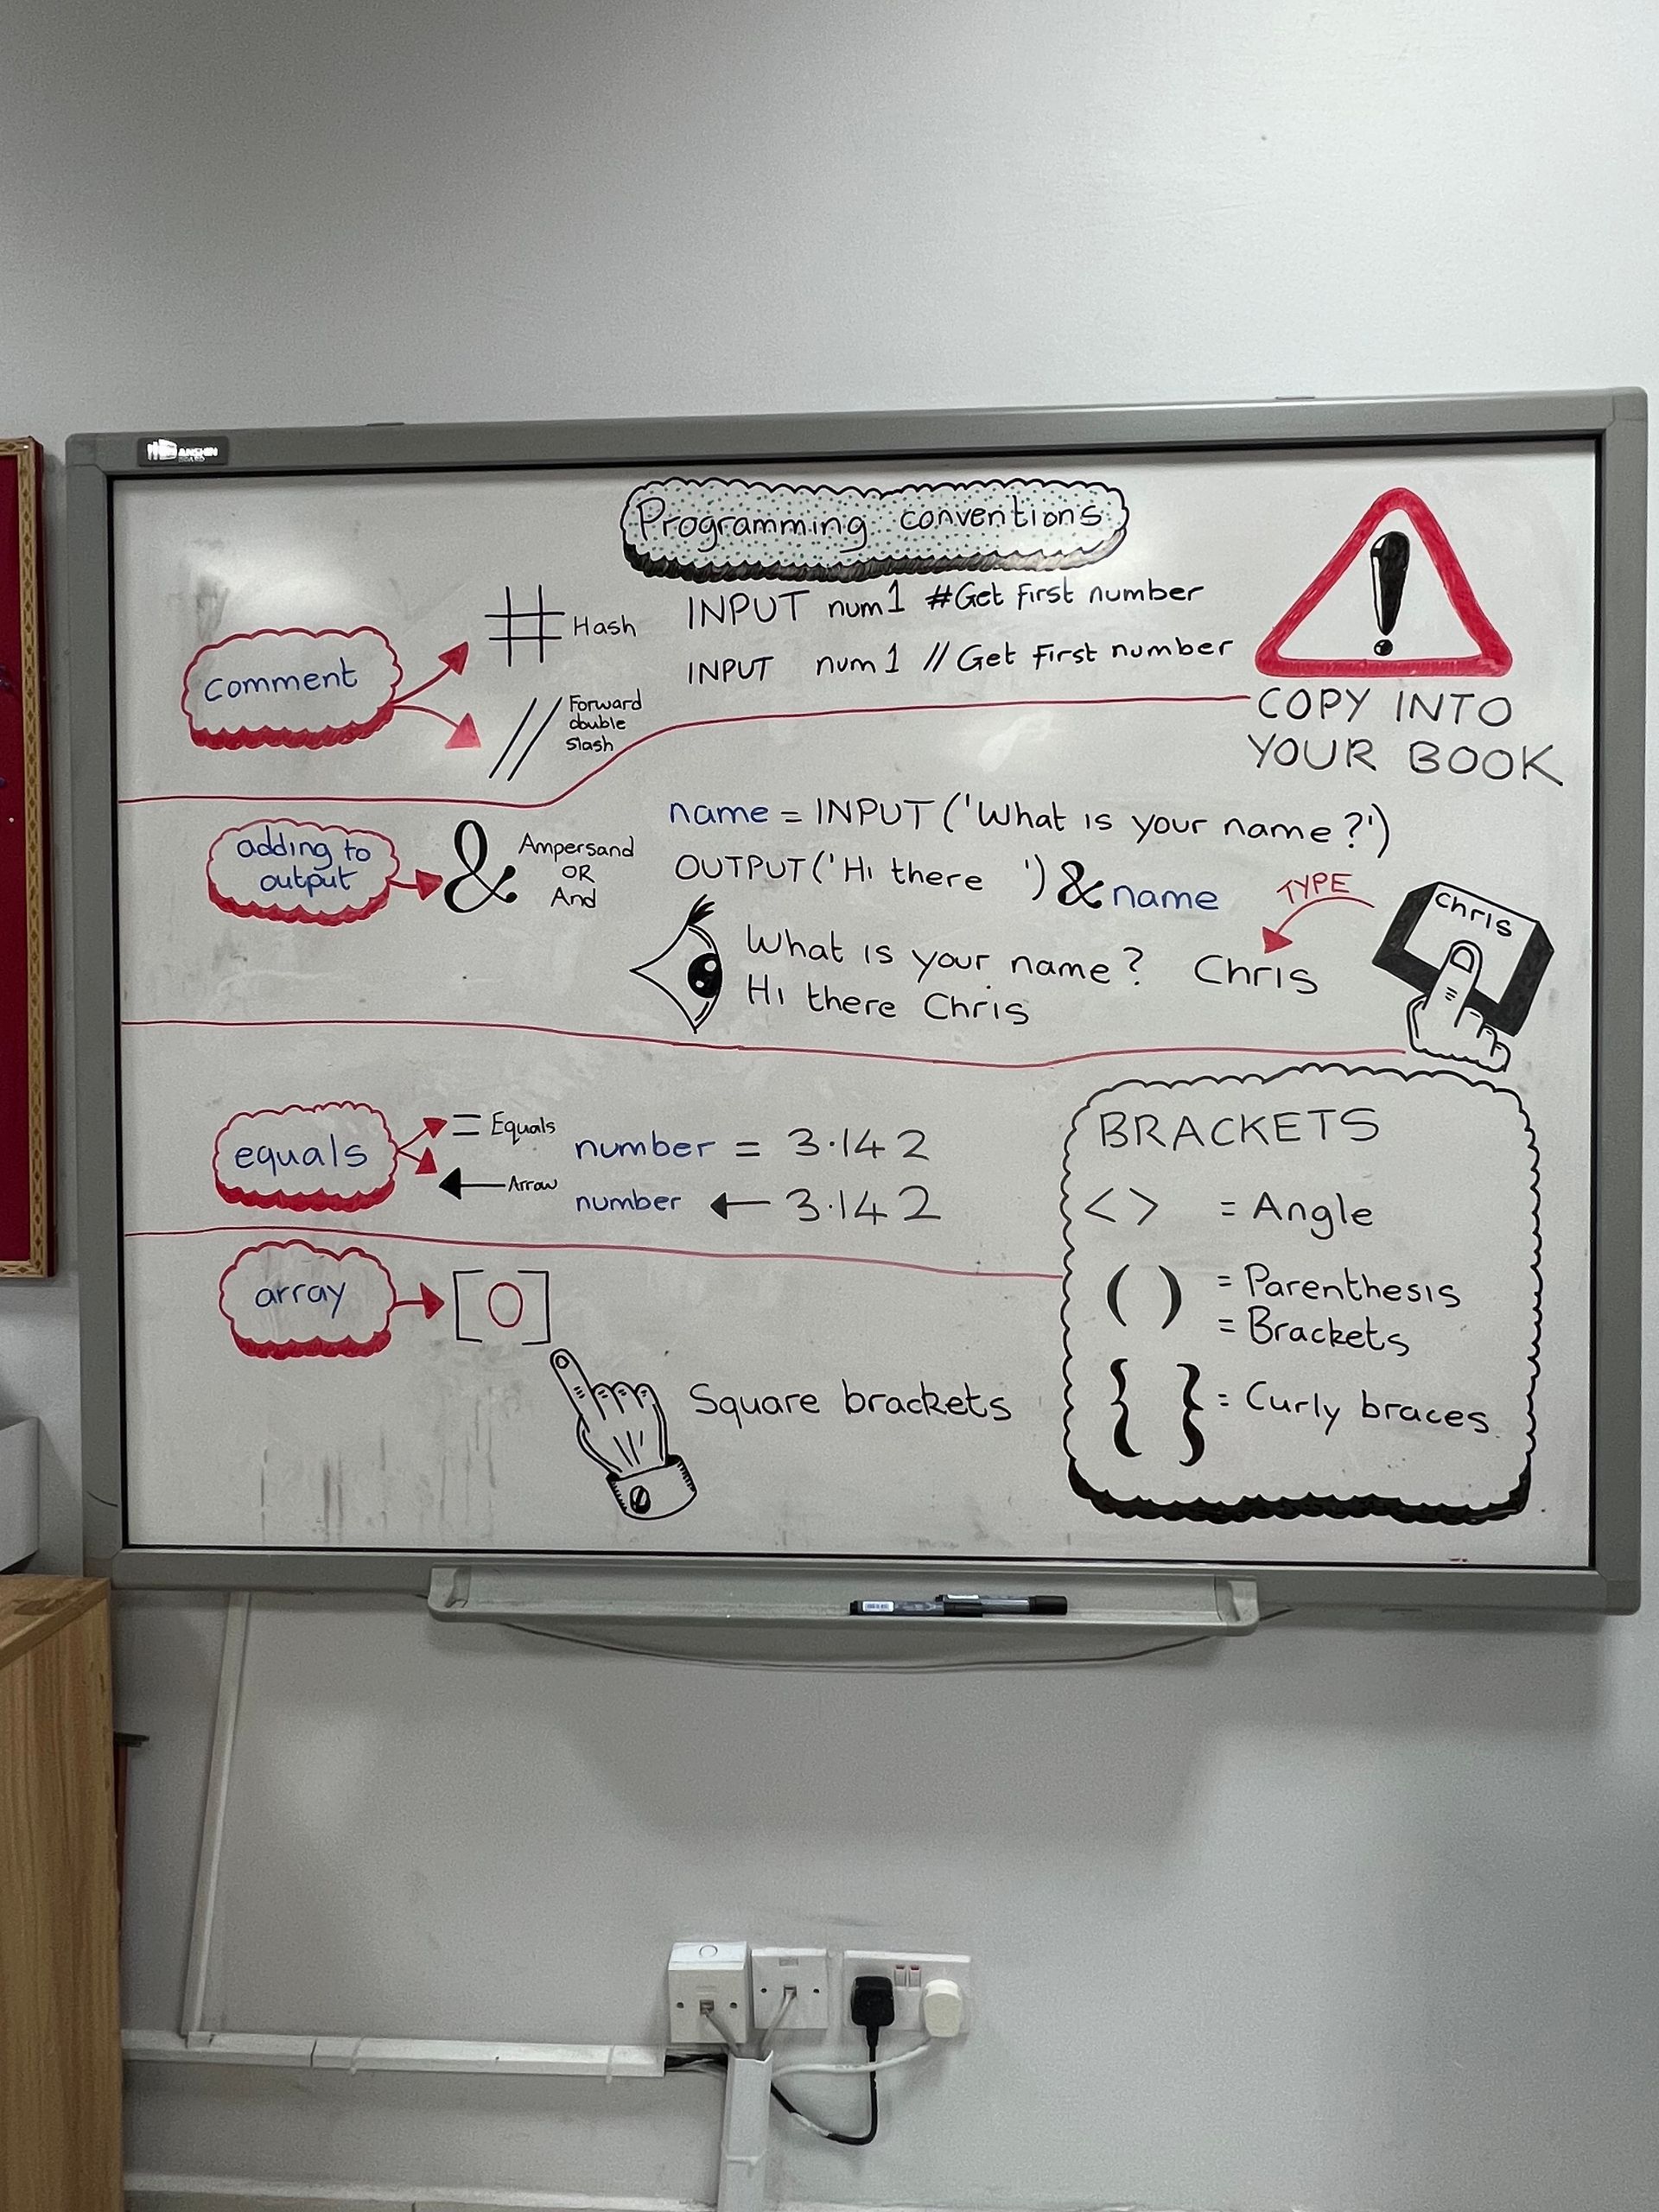 ANSHIN
BOARD
Programming conventions
comment
# Hash
// Forward
double
slash
INPUT num1 #Get First number
INPUT num1 // Get First number
COPY INTO
YOUR BOOK
adding to
output
& Ampersand
OR
And
name = INPUT ('What is your name?')
OUTPUT('Hi there ') & name
TYPE
Chris
What is your name? Chris
Hi there Chris
equals
= Equals
← Arrow
number = 3.142
number ← 3.142
array
[0]
Square brackets
BRACKETS
< > = Angle
( ) = Parenthesis
= Brackets
{ } = Curly braces